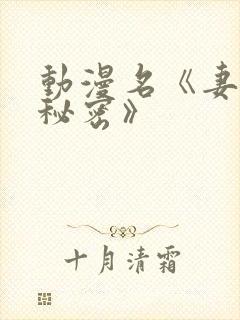 動漫名《妻
秘密》
十月清霜